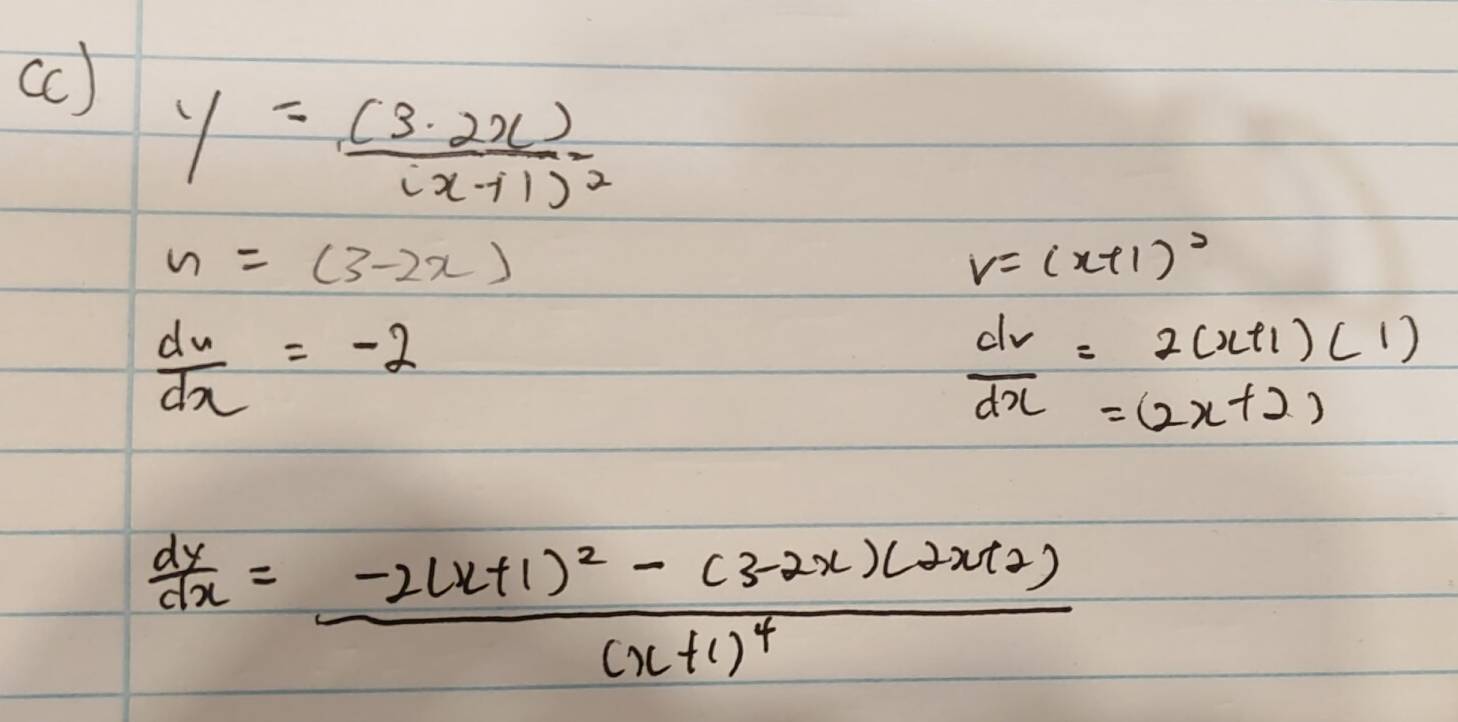 (c) y = (3-2x) / (x+1)²
u = (3-2x) v = (x+1)²
du/dx = -2 dv/dx = 2(x+1)(1)
= (2x+2)
dy/dx = -2(x+1)² - (3-2x)(2x+2) / (x+1)⁴